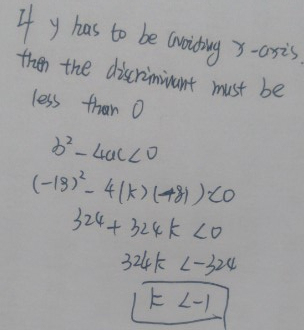 If y has to be avoiding x-axis,
then the discriminant must be
less than 0
b² - 4ac < 0
(-18)² - 4(k)(-81) < 0
324 + 324k < 0
324k < -324
k < -1